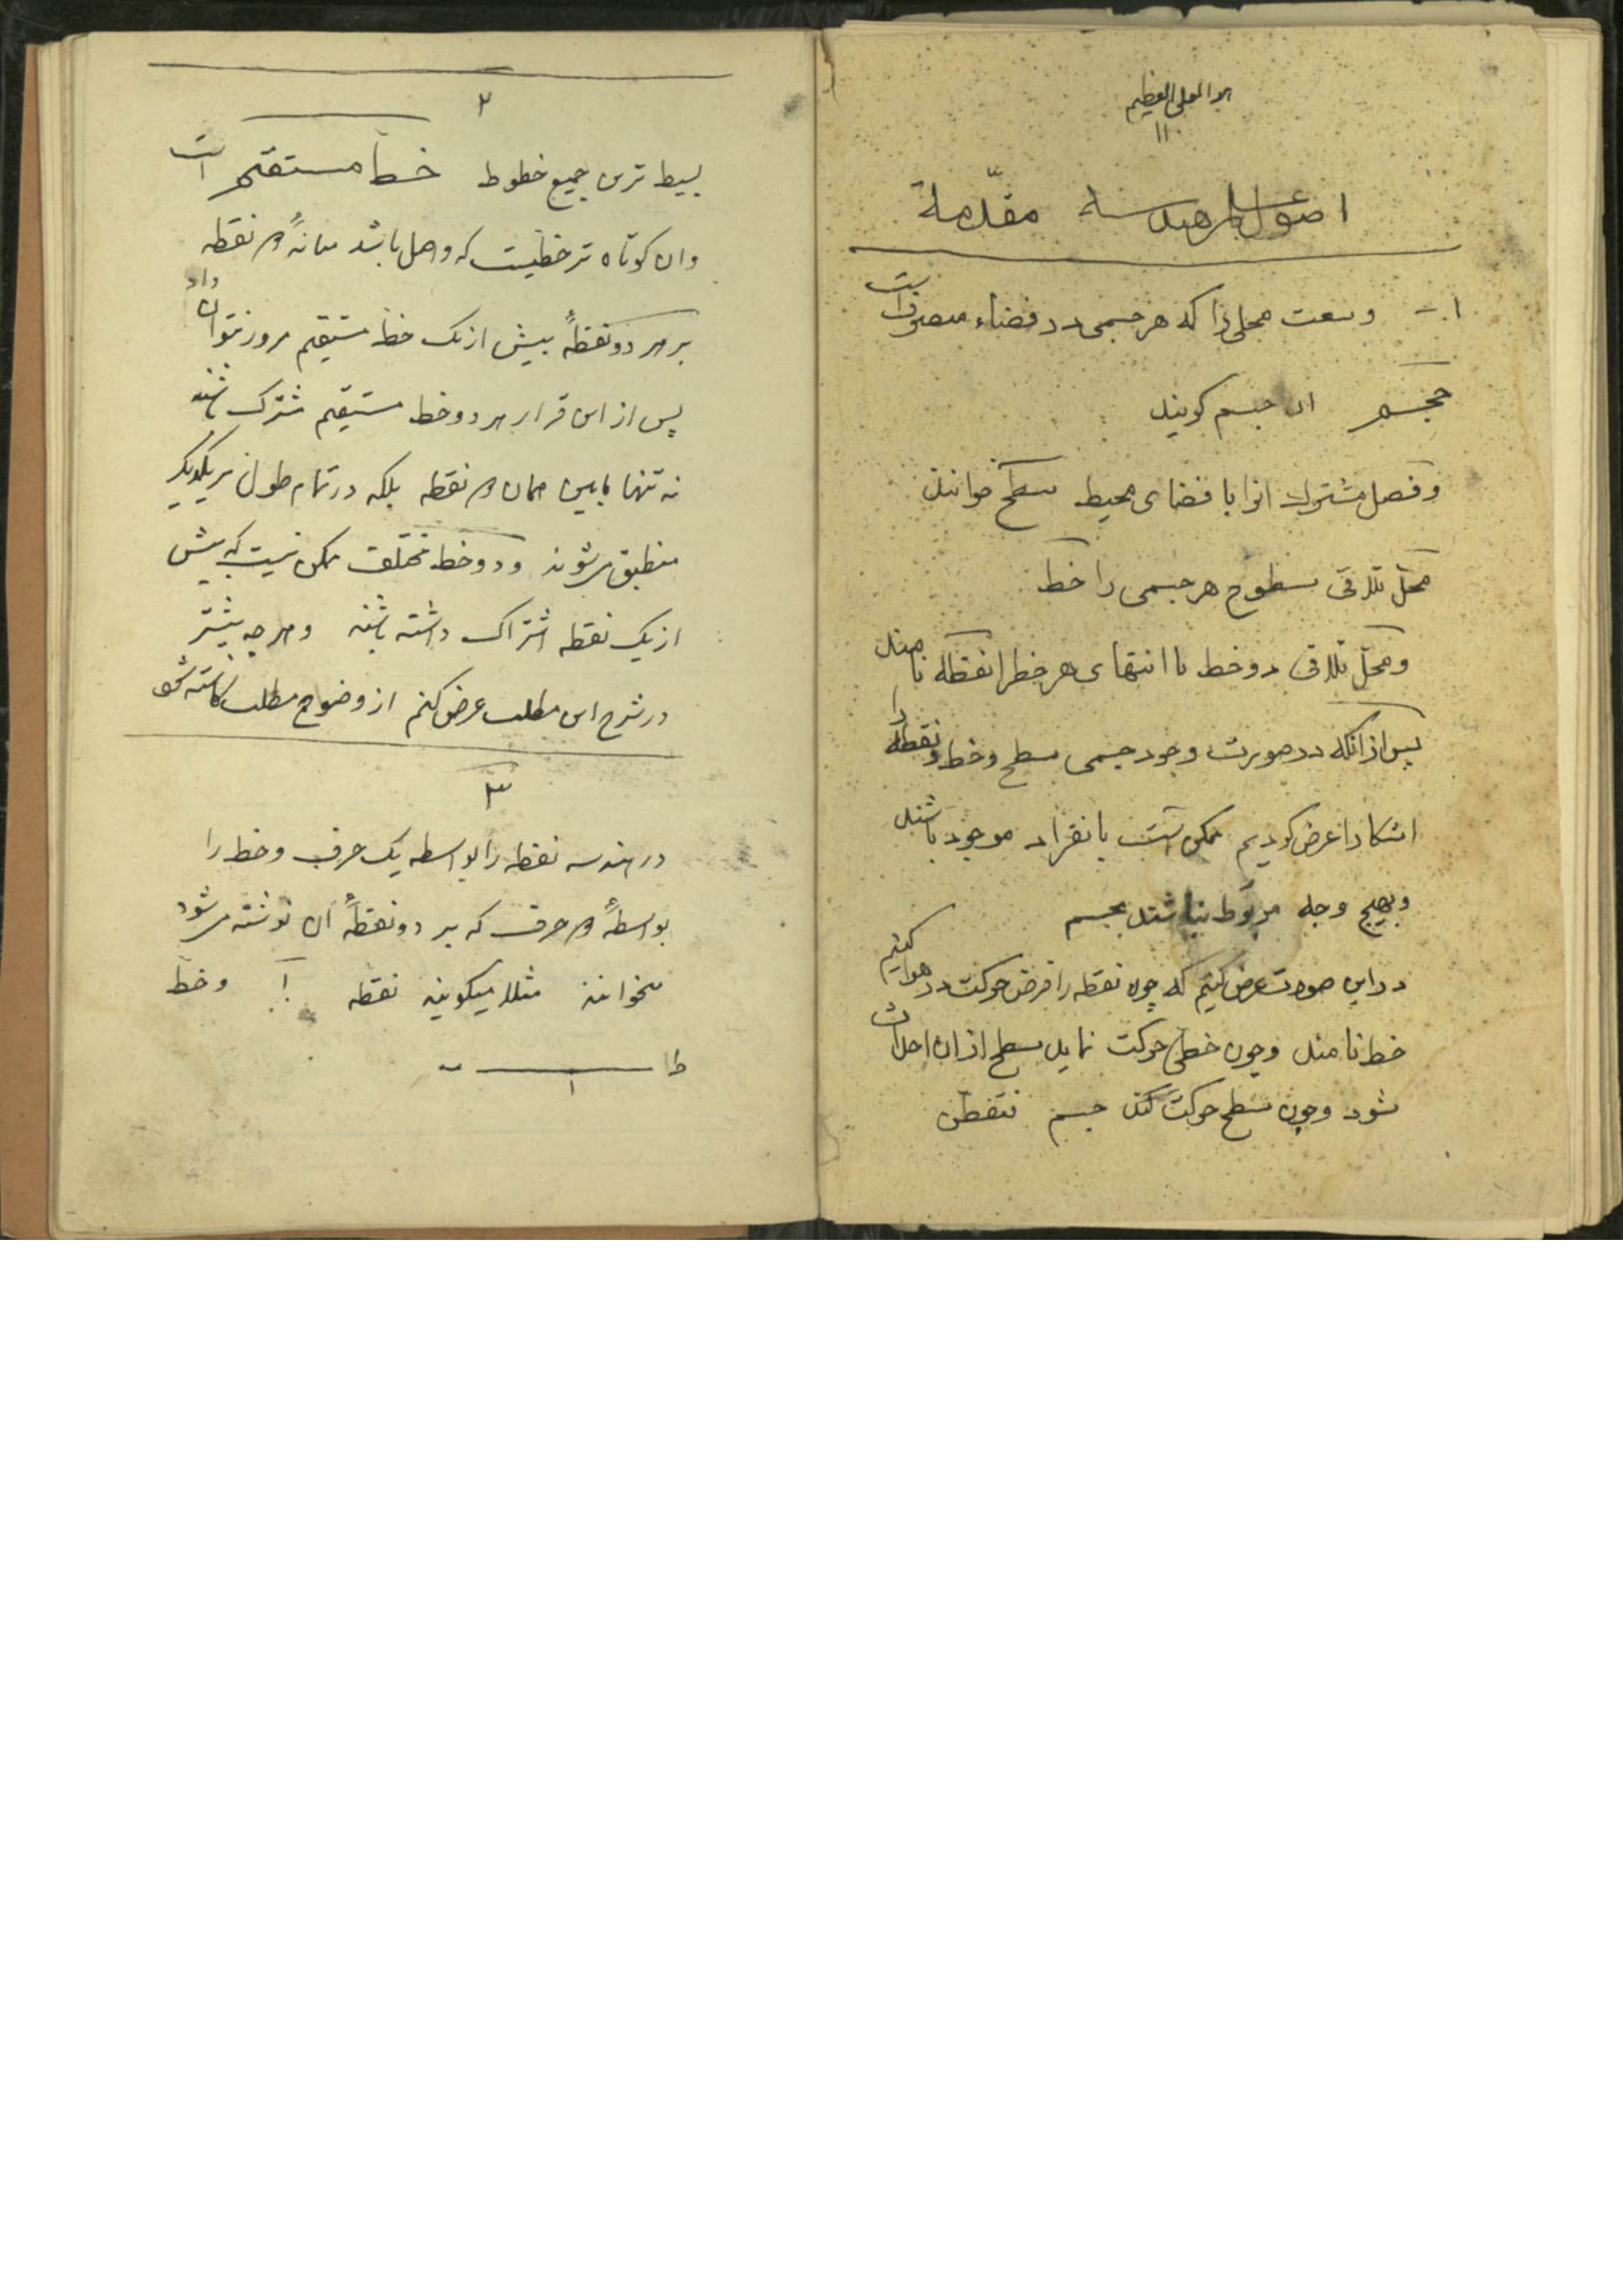 هو العلی العظیم
اصول علم هندسه مقدمة
۱ - وسعت محلی را که هر جسمی در فضاء متصرف است
حجم آن جسم گویند
و فصل مشترک آنرا با فضای محیط سطح خوانند
محل تلاقی سطوح هر جسمی را خط
و محل تلاقی دو خط یا انتهای هر خط را نقطه نامند
پس از آنکه در صورت وجود جسمی سطح و خط و نقطه را
عرض کردیم ممکن است بانفراد موجود باشند
و بهیچ وجه مربوط نباشند بجسم
در این صورت عرض کنیم که چون نقطه را فرض حرکت در هوا کنیم
خط نامند و چون خطی حرکت نماید سطح از آن احداث
شود و چون سطح حرکت کند جسم فتفطن
۲
بسیط ترین جمیع خطوط خط مستقیم است
و آن کوتاه تر خطیست که واصل باشد میانهٔ دو نقطه
بر هر دو نقطهٔ بیش از یک خط مستقیم مرور نتوان داد
پس از این قرار هر دو خط مستقیم مشترک باشند
نه تنها مابین همان دو نقطه بلکه در تمام طول بر یکدیگر
منطبق میشوند و دو خط مختلف ممکن نیست که بیش
از یک نقطه اشتراک داشته باشند و هر چه بیشتر
در شرح این مطلب عرض کنم از وضوح مطلب کاسته شود
۳
در هندسه نقطه را بواسطه یک حرف و خط را
بواسطهٔ دو حرف که بر دو نقطهٔ آن نوشته میشود
میخوانند مثلا میگویند نقطه ا و خط